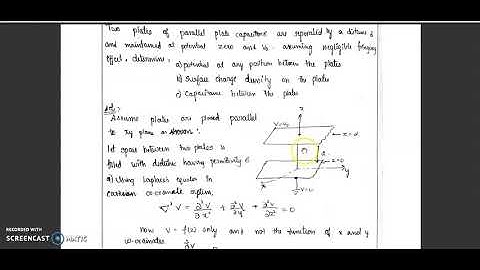 Two plates of parallel plate capacitors are separated by a distance d
and maintained at potential zero and V₀. assuming negligible fringing
effect, determine: a) potential at any position between the plates
b) Surface charge density on the plates
c) Capacitance between the plate
Sol:
Assume plates are placed parallel
to xy plane as shown:
let space between two plates is
filled with dielectric having permitivity ε
a) Using Laplace's equation in
cartesian co-ordinate system
∇²V = ∂²V/∂x² + ∂²V/∂y² + ∂²V/∂z² = 0
Now V = f(z) only and not the function of x and y
co-ordinates
z
V=V₀
z=d
z=0
y
V=0
RECORDED WITH
SCREENCAST MATIC